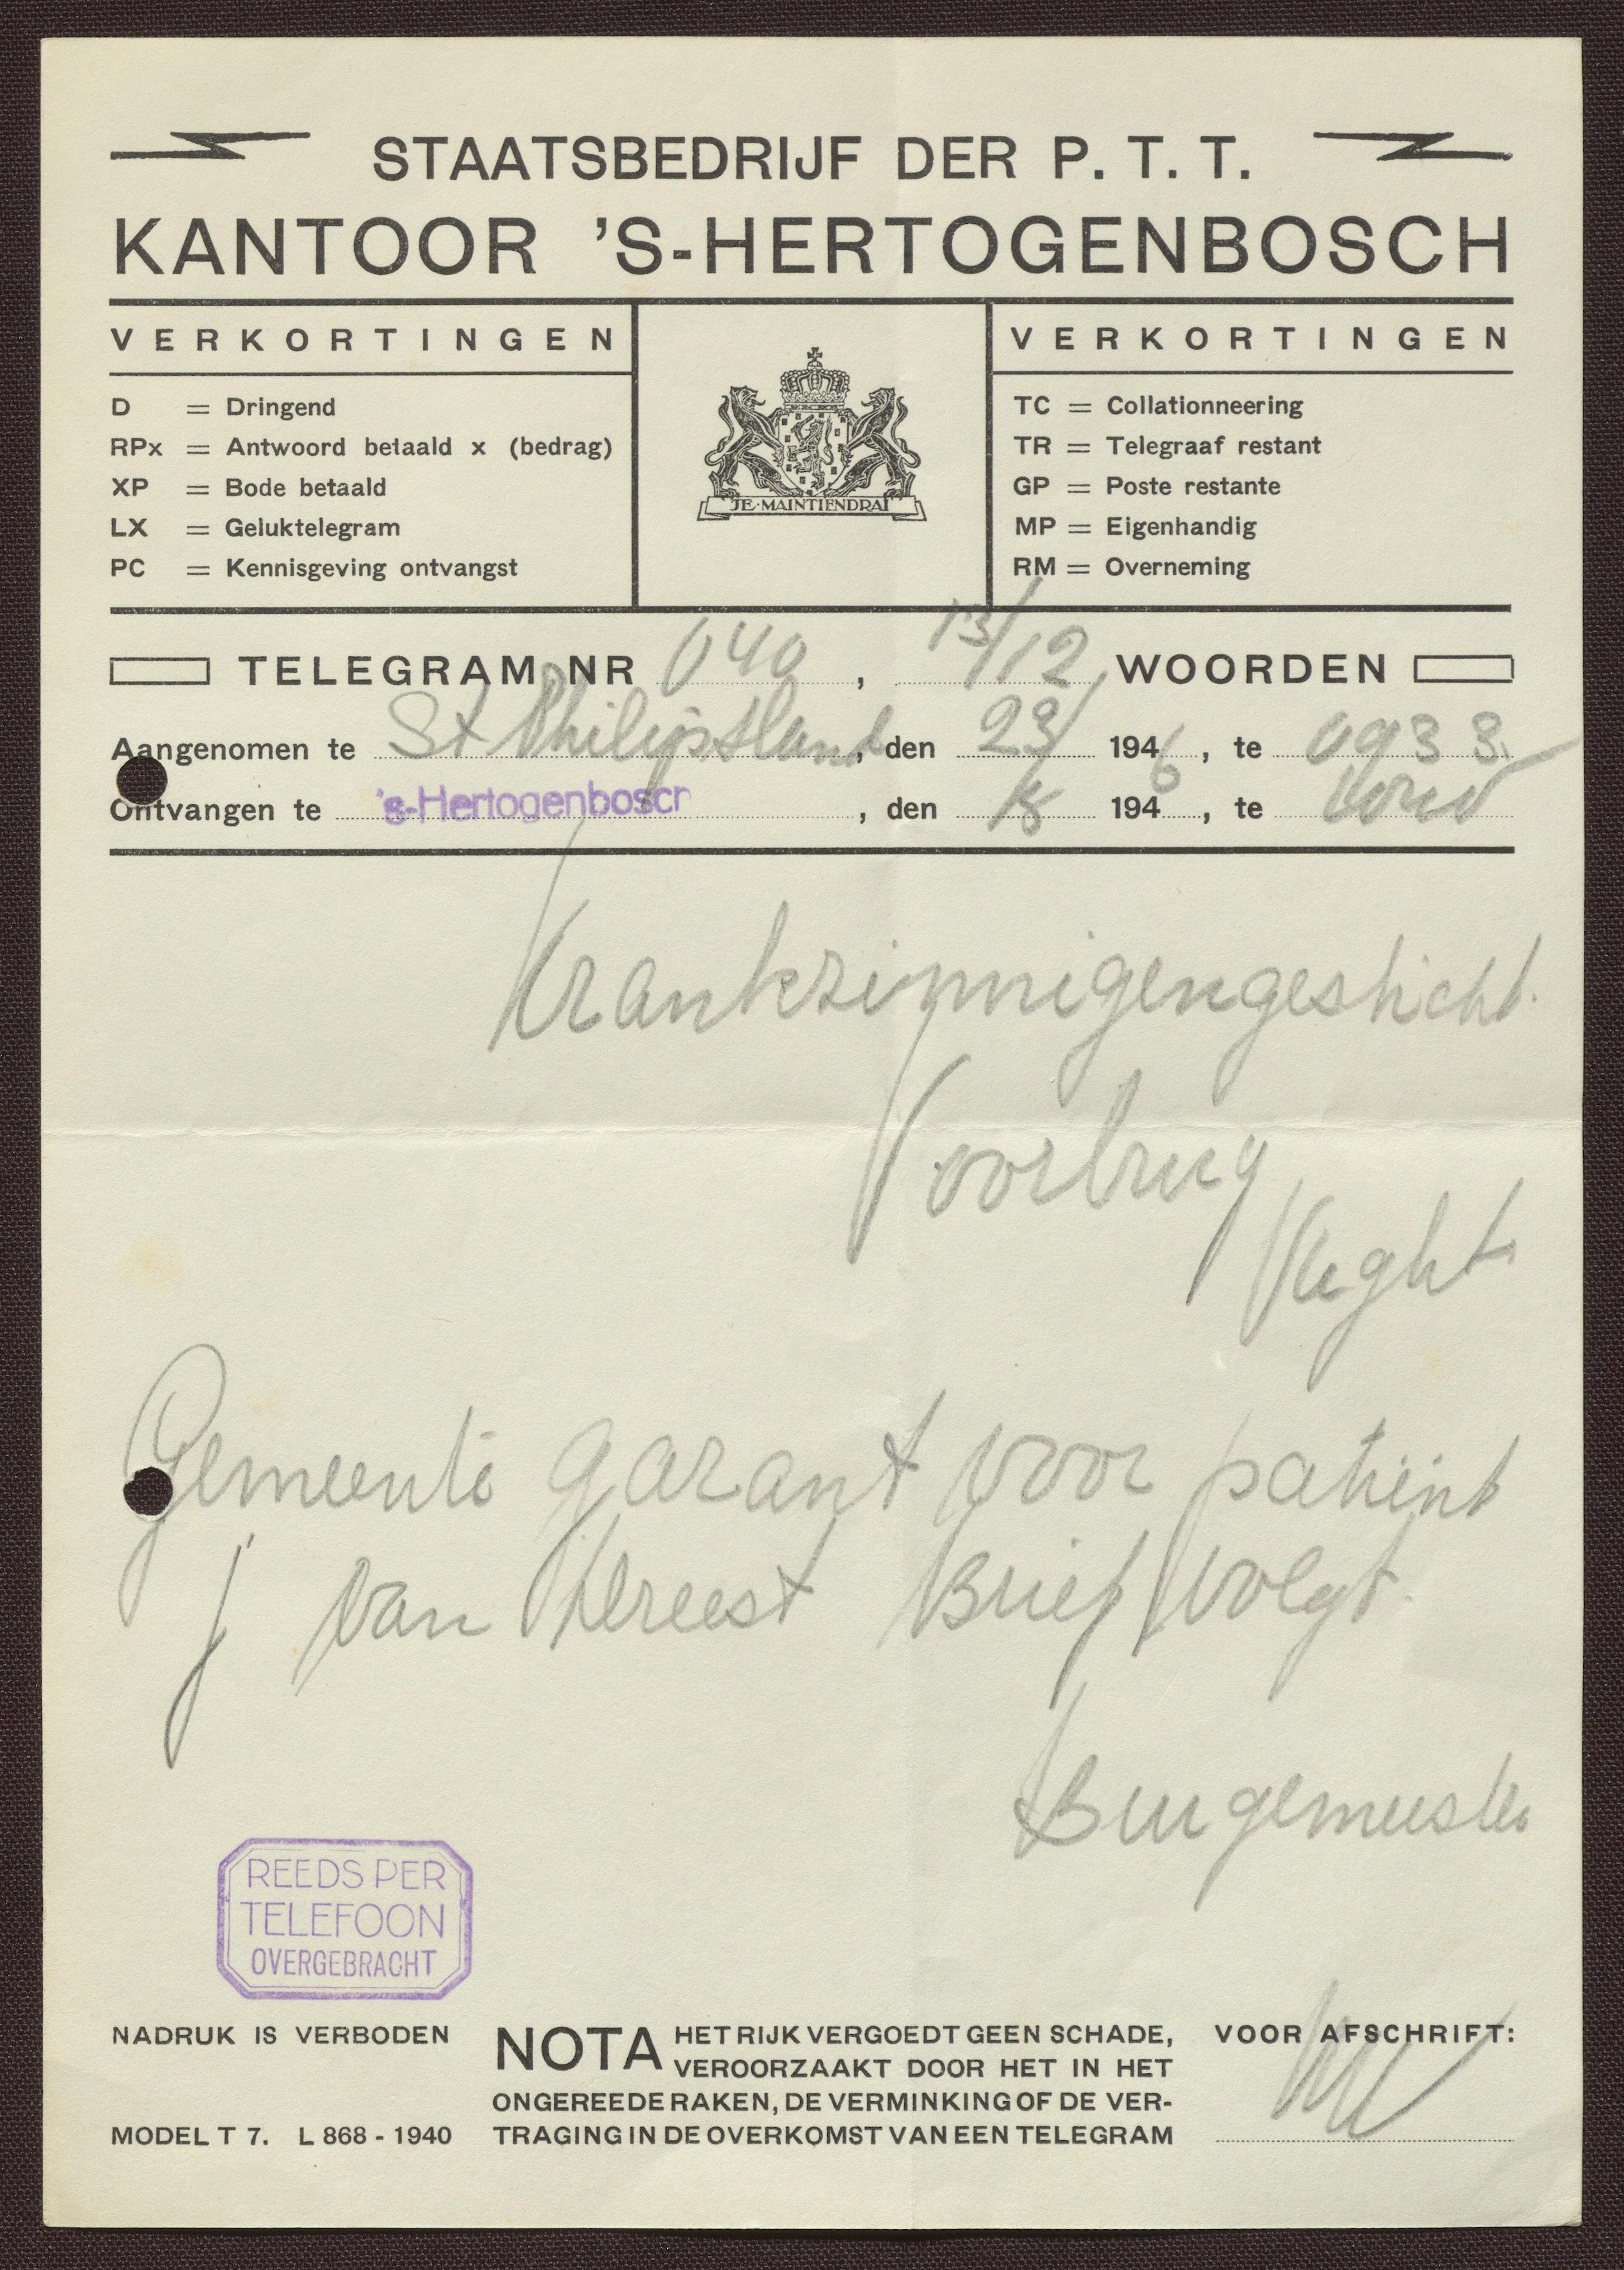 STAATSBEDRIJF DER P. T. T.
KANTOOR 'S-HERTOGENBOSCH
VERKORTINGEN
D = Dringend
RPx = Antwoord betaald x (bedrag)
XP = Bode betaald
LX = Geluktelegram
PC = Kennisgeving ontvangst
JE·MAINTIENDRAI
VERKORTINGEN
TC = Collationneering
TR = Telegraaf restant
GP = Poste restante
MP = Eigenhandig
RM = Overneming
TELEGRAM NR 040, 13/12 WOORDEN
Aangenomen te St Philipsland, den 23/ 1946, te 0933
Ontvangen te 's-Hertogenbosch, den 194, te
Krankzinnigengesticht
Voorburg
Vught
Gemeente garant voor patiënt
J van Brief volgt
Burgemeester
REEDS PER
TELEFOON
OVERGEBRACHT
NADRUK IS VERBODEN
MODEL T 7. L 868 - 1940
NOTA HET RIJK VERGOEDT GEEN SCHADE,
VEROORZAAKT DOOR HET IN HET
ONGEREEDE RAKEN, DE VERMINKING OF DE VER-
TRAGING IN DE OVERKOMST VAN EEN TELEGRAM
VOOR AFSCHRIFT: